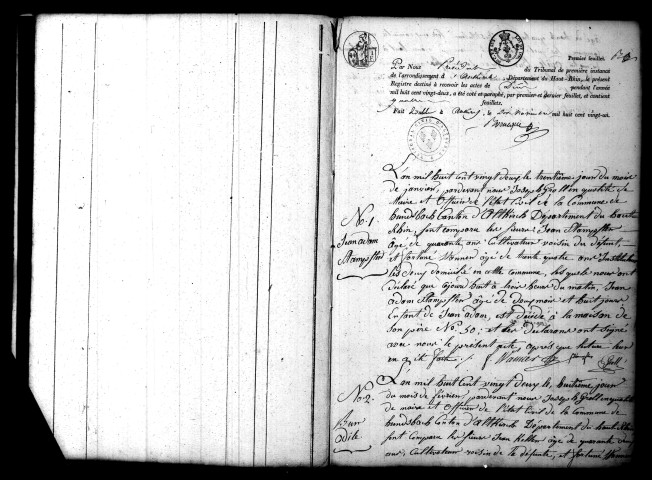 Premier feuillet.
Par Nous Président du Tribunal de première instance
de l'arrondissement d'Altkirch, Département du Haut-Rhin, le présent
Registre destiné à recevoir les actes de pendant l'année
mil huit cent vingt-deux, a été coté et paraphé, par premier et dernier feuillet, et contient
quatre feuillets.
Fait double à Altkirch, le mil huit cent vingt-un.
No. 1
Jean adam
Stampfler
L'an mil huit cent vingt deux le trentième jour du mois
de janvier, pardevant nous Joseph Groll en qualité de
Maire et Officier de l'état Civil de la Commune de
hundsbach Canton d'Altkirch Département du haut
Rhin, sont comparu les sieurs Jean Stampfler
âgé de quarante ans Cultivateur voisin du défunt,
et fortuné Wanner âgé de trente quatre ans
les deux domicilié en cette commune, lesquels nous ont
déclaré que aujourd'huit à trois heures du matin, Jean
adam Stampfler âgé de douze mois et huit jours
Enfant de Jean adam, est décédé à la maison de
son père No. 50; et les déclarans ont signé
avec nous le présent acte, après que lecture leur
en a été faite.
Wanner Groll
No. 2.
L'an mil huit Cent vingt deux le huitième jour
du mois de février, pardevant nous Joseph Groll en qualité
de maire et Officier de l'état Civil de la Commune de
hundsbach Canton d'Altkirch Département du haut Rhin
sont comparu les sieurs Jean Keller âgé de quarante
ans, Cultivateur voisin de la défunte, et fortuné Wanner